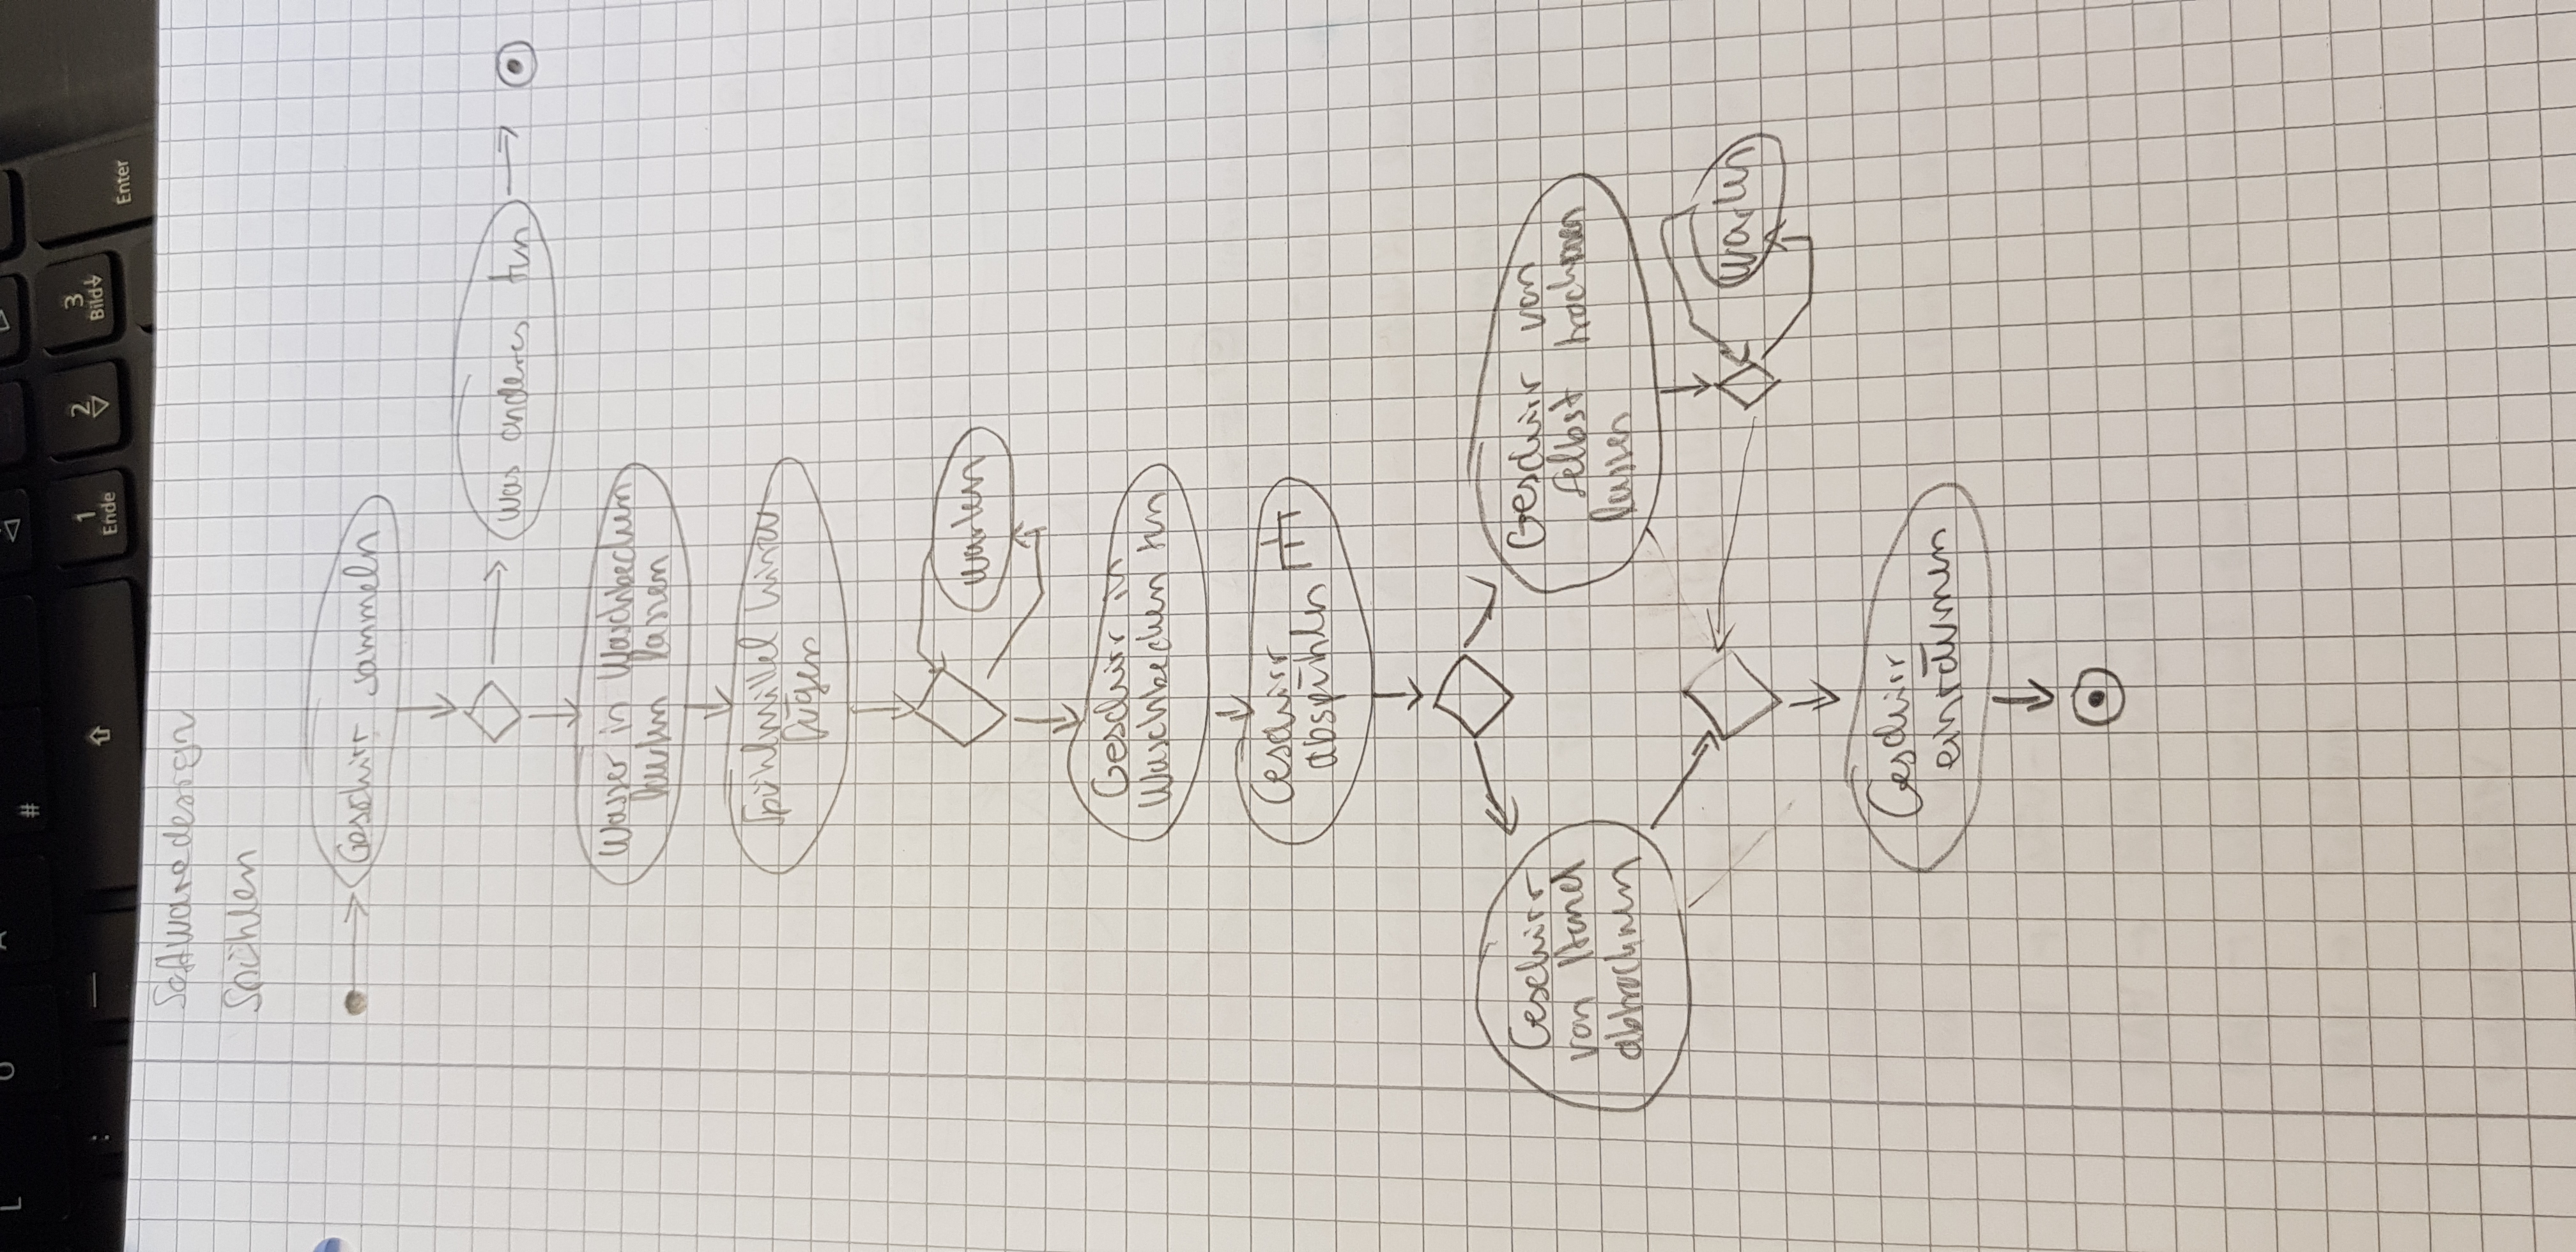 L
#
1
Ende
2
3
Bild↓
Enter
Softwaredesign
Spühlen
Geschirr sammeln
was anderes tun
Wasser in Waschbecken
laufen lassen
Spühlmittel hinzu
fügen
warten
Geschirr in
Waschbecken tun
Geschirr
abspühlen
Geschirr
von Hand
abtrocknen
Geschirr von
selbst trocknen
lassen
warten
Geschirr
einräumen